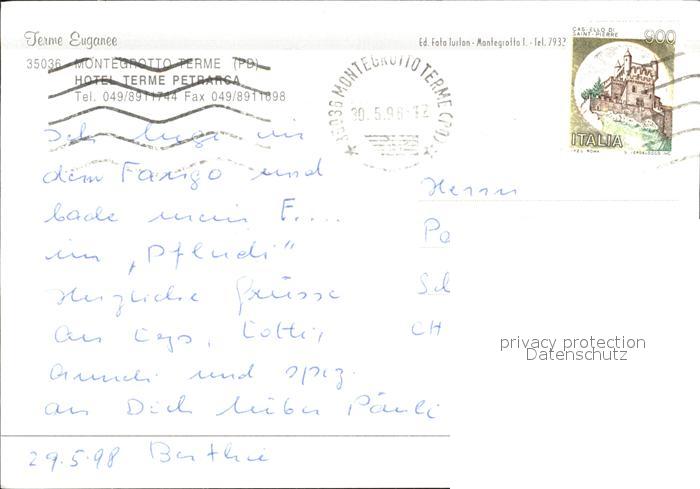 Terme Euganee
Ed. Foto Turlon - Montegrotto T. - Tel. 7932
35036 MONTEGROTTO TERME (PD)
HOTEL TERME PETRARCA
Tel. 049/8911744 Fax 049/8911698
35036 MONTEGROTTO TERME (PD)
30.5.98-12
CASTELLO DI
SAINT-PIERRE
900
ITALIA
I.P.Z.S. ROMA
Ich liege in
dem Fango und
bade mein F....
im "Pfludi"
Herzliche Grüsse
an
und spez.
an Dich lieber Päuli
29.5.98
Herrn
CH
privacy protection
Datenschutz